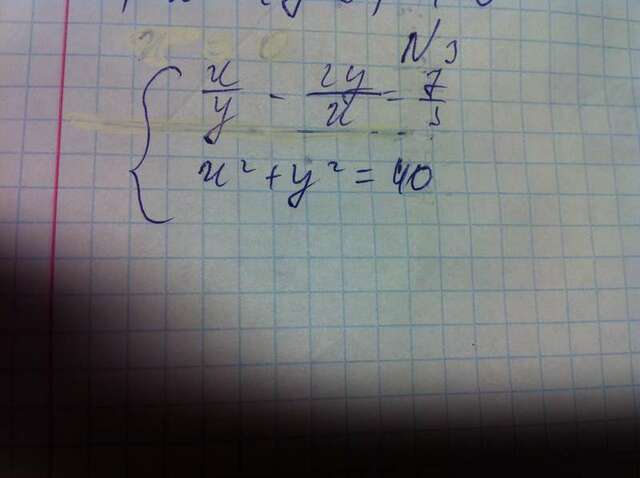 N3
x/y - 2y/x = 7/3
x² + y² = 40